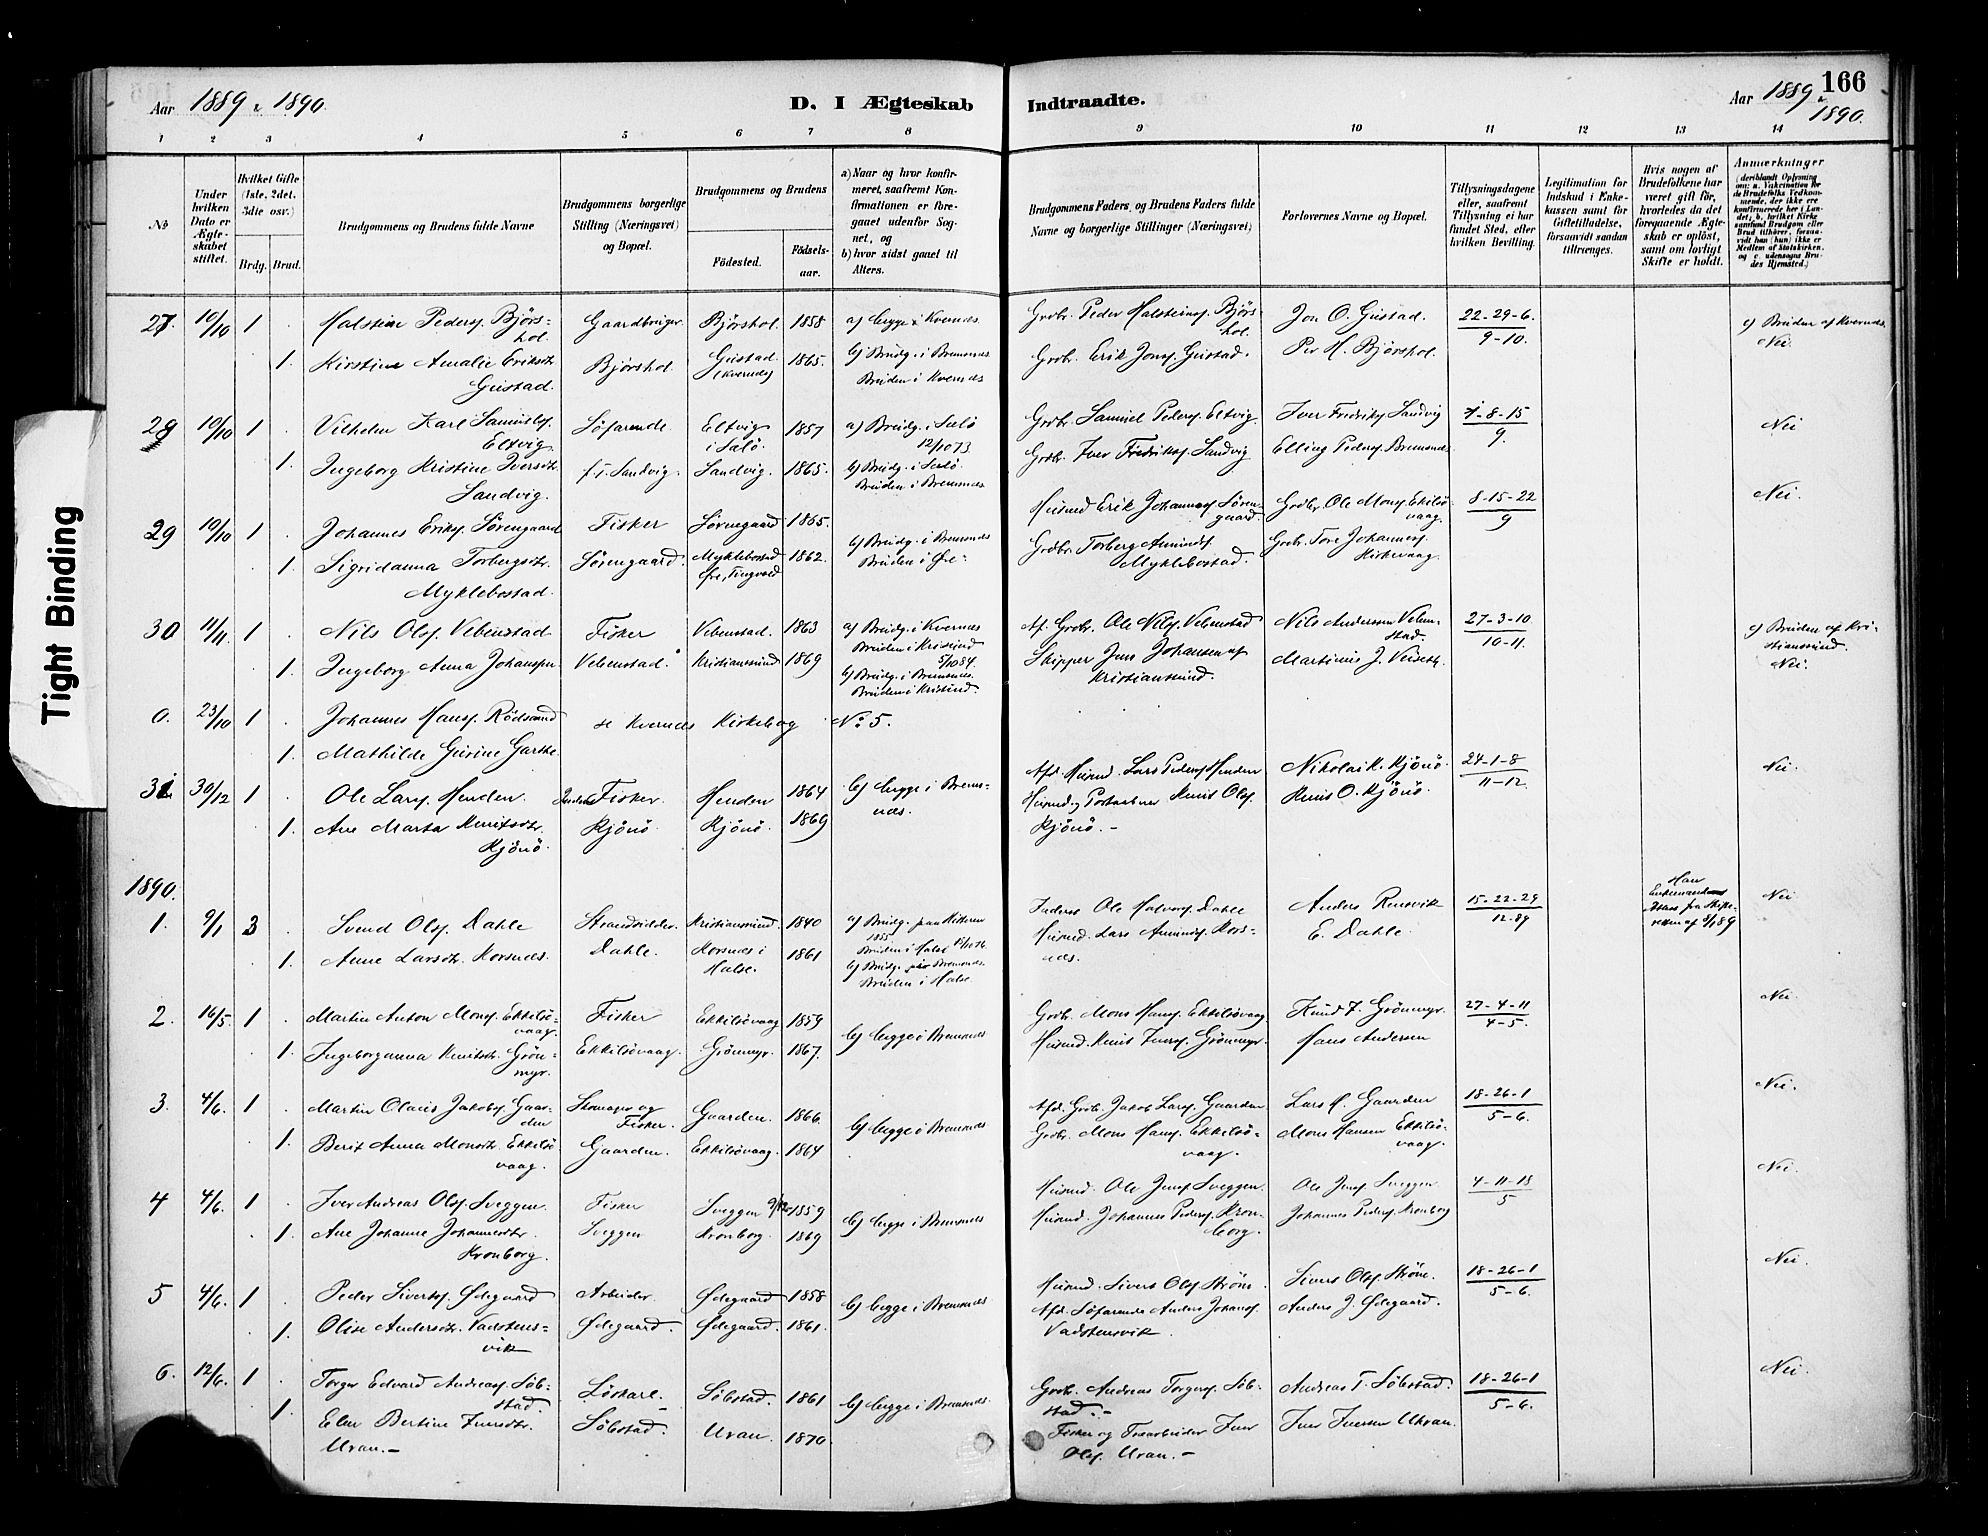 Aar 1889 & 1890.
D. I Ægteskab
Indtraadte.
Aar 1889 & 1890.
166
1 2 3 4 5 6 7 8 9 10 11 12 13 14
No
Under hvilken Dato er Ægteskabet stiftet.
Hvilket Gifte (1ste, 2det, 3die osv.)
Brdg. Brud.
Brudgommens og Brudens fulde Navne
Brudgommens borgerlige Stilling (Næringsvei) og Bopæl.
Brudgommens og Brudens
Födested.
Födselsaar.
a) Naar og hvor konfirmeret, saafremt Konfirmationen er foregaaet udenfor Sognet, og
b) hvor sidst gaaet til Alters.
Brudgommens Faders og Brudens Faders fulde Navne og borgerlige Stillinger (Næringsvei)
Forlovernes Navne og Bopæl.
Tillysningsdagene eller, saafremt Tillysning ei har fundet Sted, efter hvilken Bevilling.
Legitimation for Indskud i Enkekassen samt for Giftetilladelse, forsaavidt saadan tiltrænges.
Hvis nogen af Brudefolkene har været gift før, hvorledes da det foregaaende Ægteskab er oplöst, samt om lovligt Skifte er holdt.
Anmærkninger (deriblandt Oplysning om: a. Vakcination for de Brudefolks Vedkommende, der ikke ere konfirmerede her i Landet; b. hvilket Kirkesamfund Brudgom eller Brud tilhörer, forsaavidt han (hun) ikke er Medlem af Statskirken, og c. udensogns Brudes Hjemsted.)
27. 10/10 1 . Halstein Peders. Bjørshol. Gaardbruger Bjørshol. 1858 a) begge i Kvernes. Grdbr. Peder Halsteins. Bjørshol. Jon O. Gustad. 22-29-6. c) Bruden af Kvernes.
1. Kirstine Amalie Eriksdtr. Gustad. Bjørshol Gustad i Kvernes 1865. b) Brudg. i Bremsnes Bruden i Kvernes Grdbr. Erik Jons. Gustad. Per H. Bjørshol. 9-10. Nei.
28 10/10 1 . Vilhelm Karl Samuels. Eltvig Søfarende Eltvig i Sulø. 1857 a) Brudg. i Sulø 12/10 73. Grdbr. Samuel Peders. Eltvig. Iver Fredriks. Sandvig 1-8-15 Nei
1. Ingeborg Kristine Iversdtr. Sandvig. f. T. Sandvig. Sandvig. 1865. b) Brudg. i Sulø. Bruden i Bremsnes Grdbr. Iver Fredriks. Sandvig Elling Peders. Bremsnes 9.
29 10/10 1 Johannes Eriks. Sørengaard Fisker Sørengaard 1865. b) Brudg. i Bremsnes Husmd Erik Johannes. Sørengaard. Grdbr. Ole Mons. Ekkilsövaag. 8-15-22 Nei.
1. Sigridanna Torbergsdtr. Myklebostad. Sørengaard. Myklebostad Øre, Tingvold 1862. Bruden i Øre Grdbr. Torberg Amunds. Myklebostad. Grdbr. Tore Johannes. Kirkevaag. 9
30 11/11 1 . Nils Ols. Vebenstad Fisker Vebenstad. 1863 a) Brudg. i Kvernes Bruden i Kristsund 5/10 84. Af. Grdbr. Ole Nils. Vebenstad Nils Andersen Vebenstad. 27-3-10 c) Bruden af Kristiansund.
1. Ingeborg Anna Johansen Vebenstad. Kristiansund 1869 b) Brudg. i Bremsnes. Bruden i Kristsund. Skipper Jens Johansen af Kristiansund. Martinus J. Veiseth. 10-11. Nei.
0. 23/10 1 . Johannes Hans. Rödsand se Kvernes Kirkebog No. 5.
1. Mathilde Gurine Garthe.
31 30/12 1 . Ole Lars. Henden. Fisker. Henden 1864 b) begge i Bremsnes. Afd. Husmd. Lars Peders. Henden Nikolai K. Kjönö. 24-1-8 Nei.
1. Ane Marta Knutsdtr. Kjönö. Kjönö. Kjönö. 1869 Husmd. og Postaabner Knut Ols. Kjönö.- Knut O. Kjönö. 11-12.
1890.
1. 9/1 3 . Svend Ols. Dahle Strandsidder Kristiansund. 1840 a) Brudg. paa Hitteren 1855 Inderst Ole Halvors. Dahle Anders Rensvik 15-22-29 Han Enkemand Nei
1. Anne Larsdtr. Korsnes. Dahle. Korsnes i Halse. 1861 Bruden i Halse b) Brudg. i Bremsnes. Bruden i Halse Husmd. Lars Amunds. Korsnes. E. Dahle. 12-89
2. 16/5. 1 . Martin Anton Mons. Ekkilsövaag. Fisker Ekkilsövaag 1859 b) begge i Bremsnes Grdbr. Mons Hans. Ekkilsövaag. Knud I. Grönmyr. 27-4-11 Nei.
1. Ingeborganna Knutsdtr. Grönmyr. Ekkilsövaag. Grönmyr. 1867. Husmd. Knut Ivers. Grönmyr. Hans Andersen 4-5.
3. 4/6. 1 . Martin Olaus Jakobs. Gaarden Skomager og Fisker. Gaarden. 1866. b) begge i Bremsnes Afd. Grdb. Jakob Lars. Gaarden Lars M. Gaarden 18-26-1 Nei.
1. Berit Anna Monsdtr. Ekkilsövaag. Gaarden. Ekkilsövaag. 1864 Grdbr. Mons Hans. Ekkilsövaag. Mons Hansen Ekkilsövaag. 5-6.
4 4/6. 1 . Iver Andreas Ols. Sveggen. Fisker Sveggen 9/12 1859 b) begge i Bremsnes Husmd. Ole Jens. Sveggen. Ole Jens. Sveggen 4-11-18 Nei.
1. Ane Johanne Johannesdtr. Kronborg. Sveggen Kronborg. 1869 Husmd. Johannes Peders. Kronborg. Johannes Peders. Kronborg 5
5 4/6. 1 . Peder Siverts. Ødegaard Arbeider. Ødegaard 1858 b) begge i Bremsnes Husmd. Sivert Ols. Ström. Sivert Ols. Ström. 18-26-1 Nei.
1. Olise Andersdtr. Vadstensvik Ødegaard. Ødegaard. 1861. Afd. Söfarende Anders Johans. Vadstensvik. Anders J. Ødegaard. 5-6.
6. 12/6. 1 . Torger Edvard Andreas. Söbstad. Löskarl. Söbstad. 1861 b) begge i Bremsnes. Grdbr. Andreas Torgers. Söbstad.- Andreas T. Söbstad. 18-26-1 Nei.
1. Elen Bertine Iversdtr. Uran.- Söbstad. Uran. 1870. Fisker og Træarbeider Iver Ols. Uran.- Iver Iversen Uran. 5-6.
Tight Binding